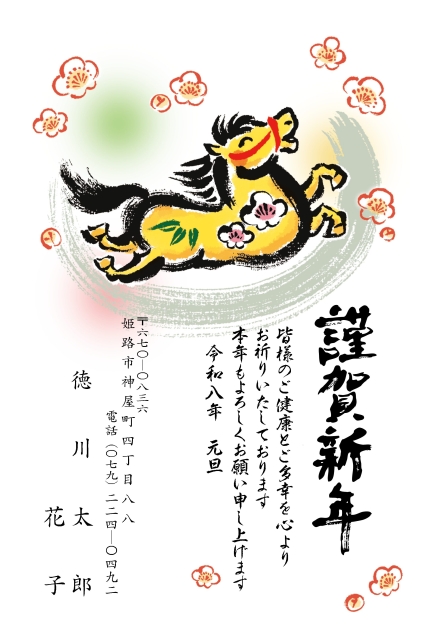 謹賀新年
皆様のご健康とご多幸を心より
お祈りいたしております
本年もよろしくお願い申し上げます
令和八年　元旦
〒六七〇―〇八三六
姫路市神屋町四丁目八八
電話(〇七九)二二四―〇四九二
徳川　太郎
花子